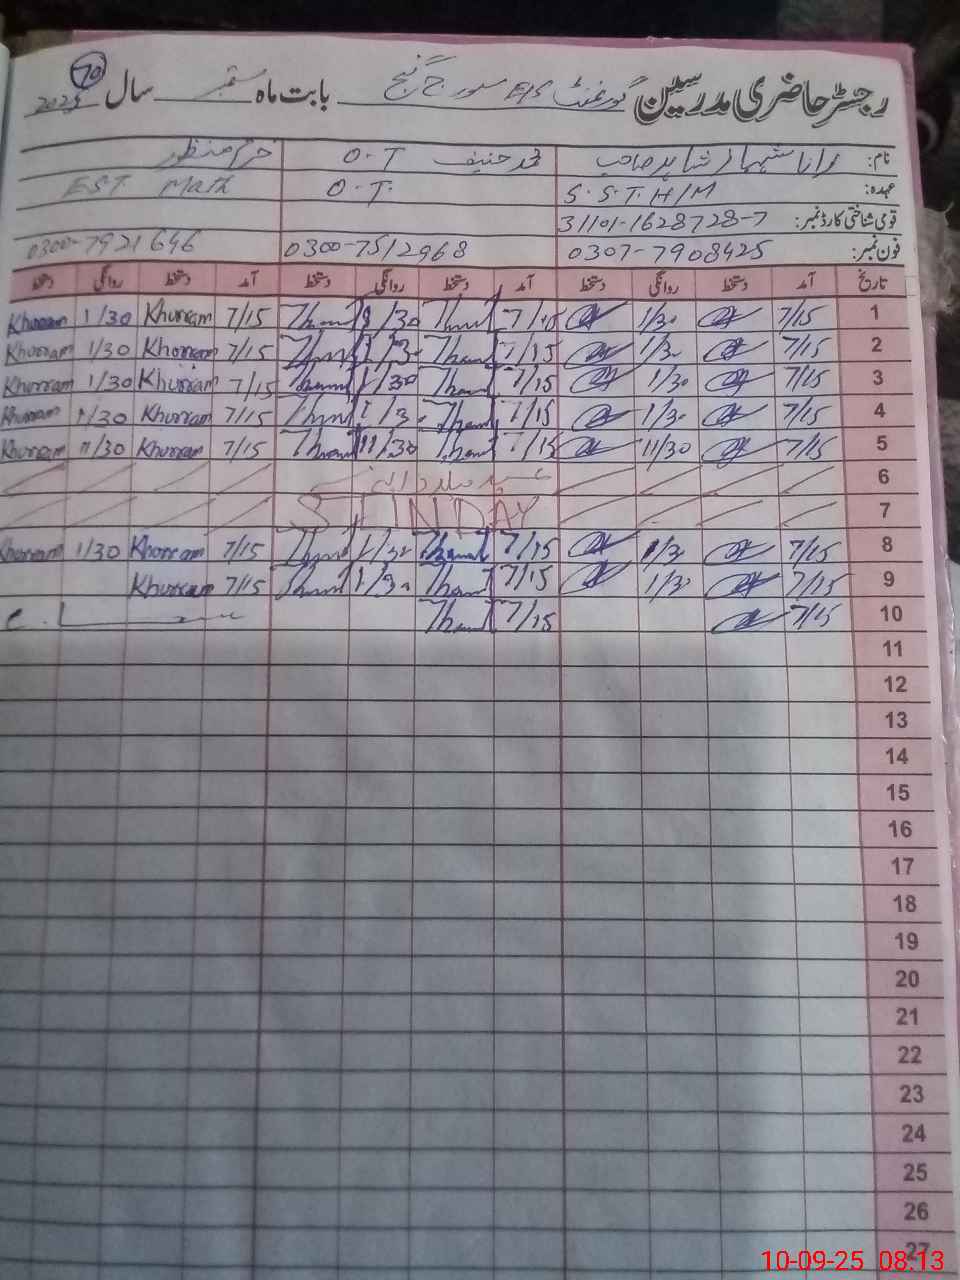 رجسٹر حاضری مدرسین گورنمنٹ E/S سورج گنج بابت ماہ ستمبر سال 2025
70
نام: رانا شہباز شاہد صاحب محمد حنیف O.T خرم منظور
عہدہ: S.S.T H/M O.T. EST Math
قومی شناختی کارڈ نمبر: 31101-1628728-7
فون نمبر: 0307-7908425 0300-7512968 0300-7921646
تاریخ آمد دستخط روانگی دستخط آمد دستخط روانگی دستخط آمد دستخط روانگی دستخط
1 7/15 1/30 7/15 1/30 7/15 Khurram 1/30 Khurram
2 7/15 1/30 7/15 1/30 7/15 Khurram 1/30 Khurram
3 7/15 1/30 7/15 1/30 7/15 Khurram 1/30 Khurram
4 7/15 1/30 7/15 1/30 7/15 Khurram 1/30 Khurram
5 7/15 11/30 7/15 11/30 7/15 Khurram 11/30 Khurram
6
7 SUNDAY
8 7/15 1/30 7/15 1/30 7/15 Khurram 1/30 Khurram
9 7/15 1/30 7/15 1/30 7/15 Khurram
10 7/15 7/15
11
12
13
14
15
16
17
18
19
20
21
22
23
24
25
26
27
10-09-25 08:13